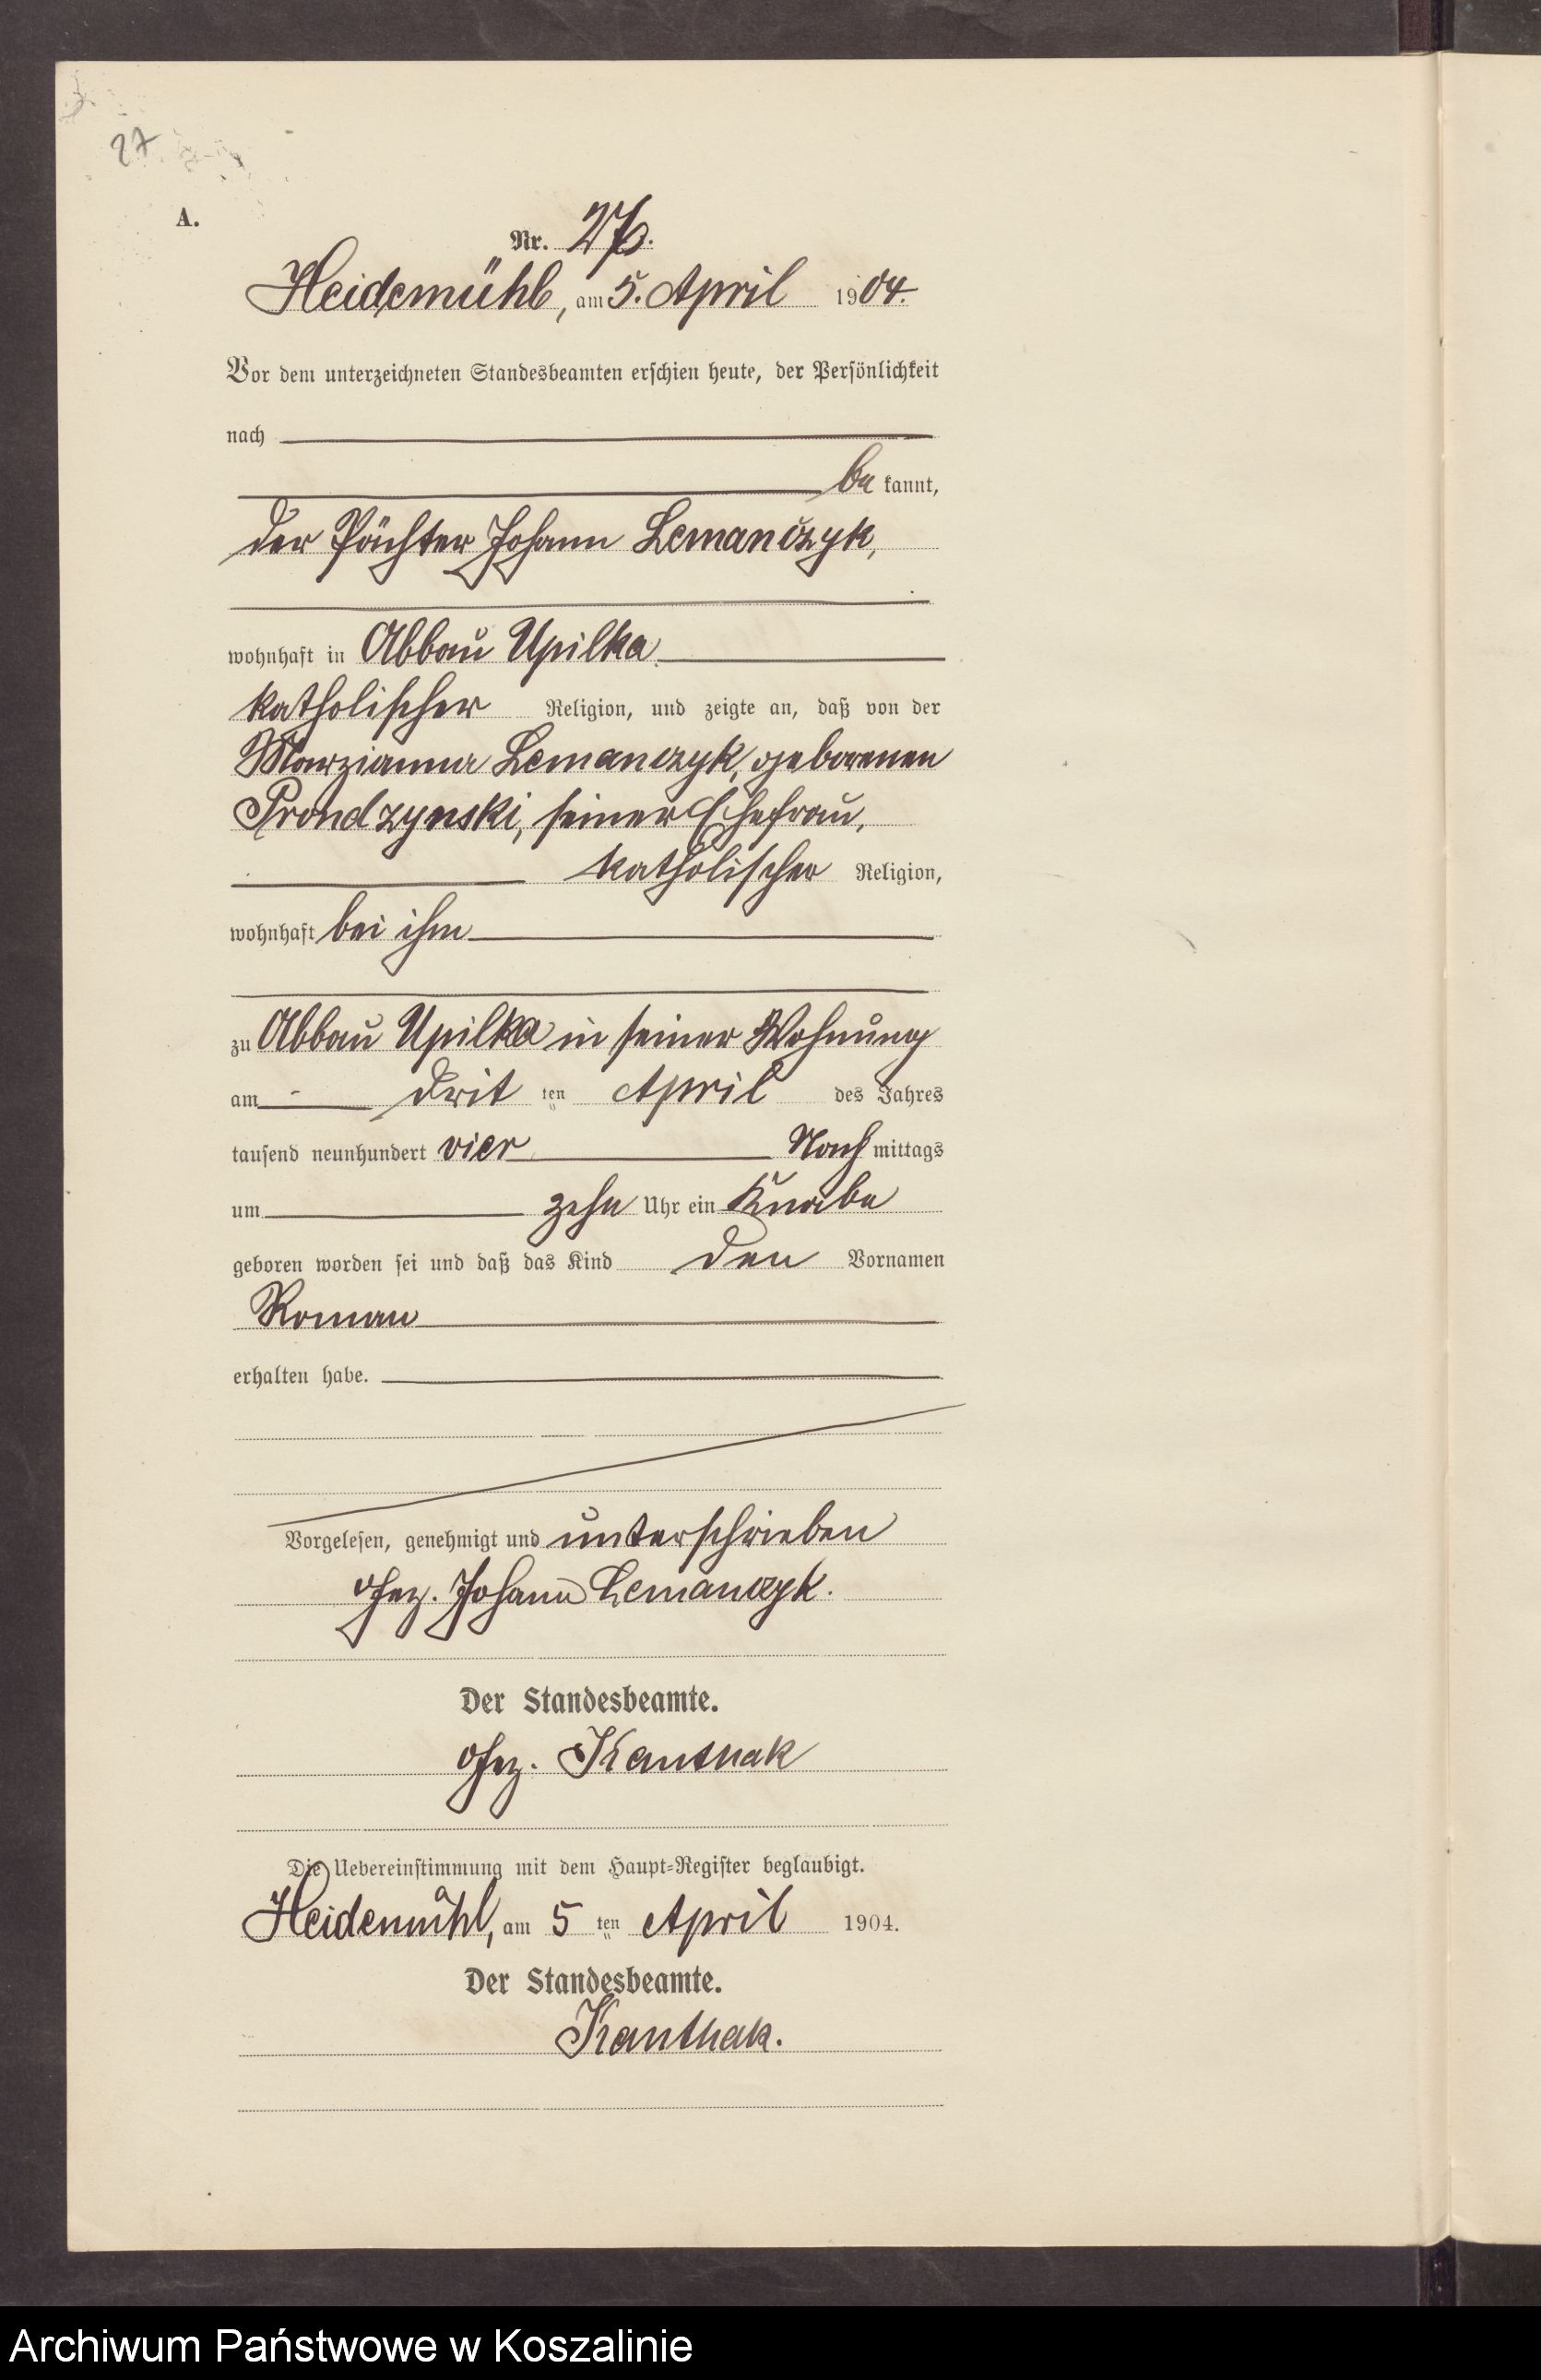 27
A.
Nr. 27.
Heidemühl, am 5. April 1904.
Vor dem unterzeichneten Standesbeamten erschien heute, der Persönlichkeit
nach
be kannt,
der Pächter Johann Lemanczyk,
wohnhaft in Abbau Upilka
katholischer Religion, und zeigte an, daß von der
Marzianna Lemanczyk, geborenen
Prondzynski, seiner Ehefrau,
katholischer Religion,
wohnhaft bei ihm
zu Abbau Upilka in seiner Wohnung
am drit ten April des Jahres
tausend neunhundert vier Nach mittags
um zehn Uhr ein Knabe
geboren worden sei und daß das Kind den Vornamen
Roman
erhalten habe.
Vorgelesen, genehmigt und unterschrieben
Gez. Johann Lemanczyk.
Der Standesbeamte.
Gez. Kanthak
Die Uebereinstimmung mit dem Haupt-Register beglaubigt.
Heidemühl, am 5 ten April 1904.
Der Standesbeamte.
Kanthak.
Archiwum Państwowe w Koszalinie